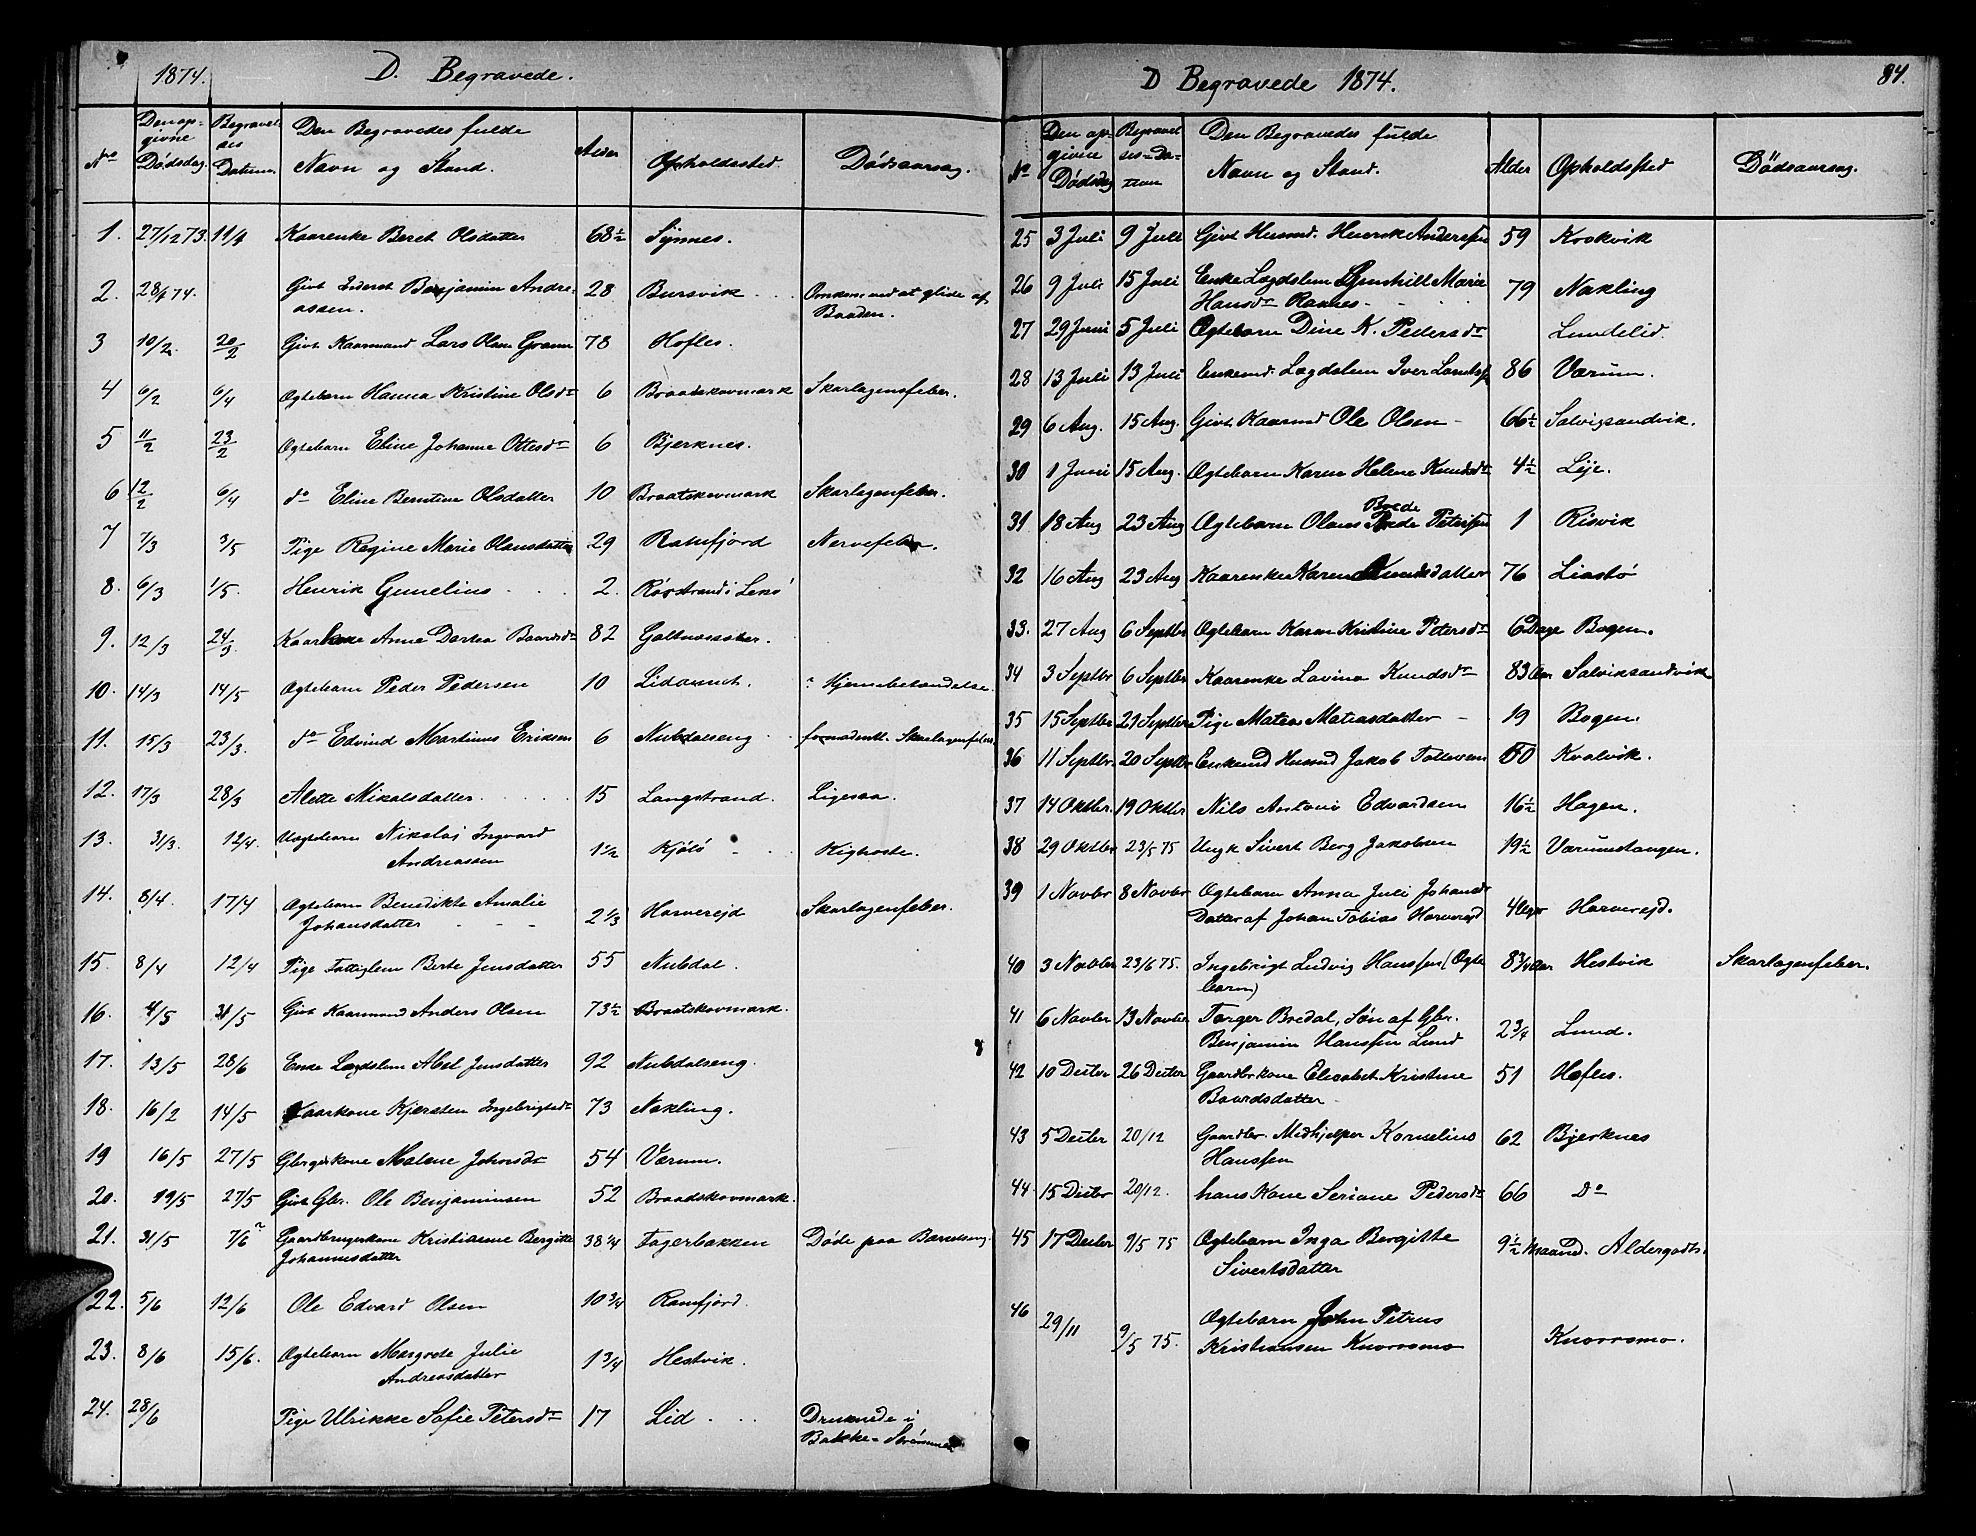 1874. D. Begravede.
No Den opgivne Dødsdag. Begravelses Datum. Den Begravedes fulde Navn og Stand. Alder Opholdssted. Dødsaarsag.
1. 27/12 73. 11/4 Kaarenke Beret Olsdatter 68½ Synnes.
2. 28/1 74. Givt Benjamin Andre-
assen. 28 Bursvik Omkommed at glide af
Baaden.
3 10/2. 20/2 Givt Kaarmand Lars Olsen Grann 78 Hofles.
4 6/2 6/4 Ogtebarn Hanna Kristine Olsdr 6 Braatskovmark Skarlagensfeber.
5 11/2 23/2 Ogtebarn Eline Johanne Ottesdr 6 Bjerknes.
6 12/2 6/4 do Eline Berntine Olsdatter 10 Braatskovmark Skarlagenfeber.
7 7/3 3/5 Pige Regine Marie Olausdatter 29 Ramfjord Nervefeber.
8. 6/3 1/5. Henrik Gunelius 2. Rörstrand i Lekö
9. 12/3 24/3 Kaarkone Anne Dortea Baardsdr 82
10. 14/3 14/5 Ogtebarn Peder Pedersen 10 Lidamt. ? Hjernebetændelse.
11. 15/3 23/3. do Edvind Martinus Eriksen 6 Nubdalseng formodentl. Skarlagenfeber
12. 17/3 28/3 Alette Mikalsdatter 15 Langstrand. Ligesaa.
13. 31/3. 12/4. Uægtebarn Nikolai Ingvard
Andreassen 1½ Kjölö Kighoste.
14. 8/4. 17/4 Ogtebarn Benedikte Amalie
Johansdatter 2⅓ Horverejd Skarlagenfeber.
15. 8/4 12/4 Pige Fattiglem Berte Jensdatter 55 Nubdal.
16. 4/5 31/5 Givt Kaarmand Anders Olsen 73½ Braatskovmark.
17. 13/5 28/6 Enke Lægdslem Abel Jensdatter 92 Nubdalseng.
18. 16/2 14/5 Kaarkone Kjersten Ingebrigtsdr 73 Nakling.
19 16/5 27/5 Gbrgerkone Malene Johansdr 54 Værum.
20. 19/5 27/5 Givt Gbr. Ole Benjaminsen 52 Braadskovmark.
21. 31/5 7/6 ? Gaardbrugerkone Kristianne Bergitte
Johannesdatter 38¼ Fagerbakken Døde paa Barselseng.
22. 5/6 12/6 Ole Edvard Olsen 10¾ Ramfjord.
23. 8/6 15/6. Ogtebarn Margrete Julie
Andreasdatter 1¾ Hestvik.
24. 28/6 Pige Ulrikke Sofie Petersdr 17 Lid Druknede i
Bakke-Strømmen
D Begravede 1874. 84.
No Den opgivne Dødsdag Begravelses-Datum Den Begravedes fulde Navn og Stand. Alder Opholdssted Dødsaarsag.
25 3 Juli 9 Juli Givt Husmd. Henrik Anderssen 59 Krokvik
26 9 Juli 15 Juli Enke Lægdslem Gunhill Marie
Hansdr Ramnes 79 Nakling
27 29 Juni 5 Juli Ogtebarn Dine K. Pedersdr Lundelid.
28 13 Juli 13 Juli Enkemd. Lægdslem Iver 86 Værum.
29 6 Aug. 15 Aug. Givt Kaarmd Ole Olsen 66½ Salvigsandvik.
30 1 Juni 15 Aug. Ogtebarn Karen Helene Knudsdr 4½ Leje.
31 18 Aug 23 Aug Ogtebarn Olaus Brede Brede Peterssen 1 Risvik
32 16 Aug 23 Aug Kaarenke Karen Knudsdatter 76 Liastö
33. 27 Aug 6 Septbr Ogtebarn Karen Kristine Petersdr 6 Dage Bogen.
34 3 Septbr 6 Septbr Kaarenke Lavina Knudsdr 83 Aar Salviksandvik
35 15 Septbr 21 Septbr Pige Matea Matiasdatter 19 Bogen.
36 11 Septbr. 20 Septbr Enkemd Husmd Jakob Tollevsen 60 Kvalvik.
37 14 Oktbr. 19 Oktbr Nils Antoni Edvardsen 16½ Hagen.
38 29 Oktbr 23/5 75 Ungk Sivert Berg Jakobsen 19½ Værumstangen.
39 1 Novbr 8 Novbr Ogtebarn Anna Juli Johansdr
Datter af Johan Tobias Horverejd 4 Uger Horverejd.
40 3 Novbr 23/6 75. Ingebrigt Ludvig Hanssen (Ogte
barn) 8¾ Aar Hestvik Skarlagenfeber.
41 6 Novbr 13 Novbr Torger Bredal, Søn af Gbr.
Benjamin Hanssen Lund 2¾ Lund.
42 10 Decbr 26 Decbr Gaardbr.kone Elisabet Kristine
Baardsdatter 51 Hofles.
43 5 Decbr 20/12 Gaardbr. Medhjelper Kornelius
Hanssen 62 Bjerknes
44 15 Decbr 20/12. hans Kone Seriane Pedersdr 66 Do
45 17 Decbr 9/5 75 Ogtebarn Inga Bergitte
Sivertsdatter 9½ Maaned. Aldergodts.
46 29/11 9/5 75. Ogtebarn John Petrus
Kristiansen Knorromo Knorromo.